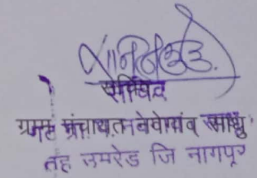 सचिव
ग्राम पंचायत नवेगांव साधु
तह उमरेड जि नागपूर